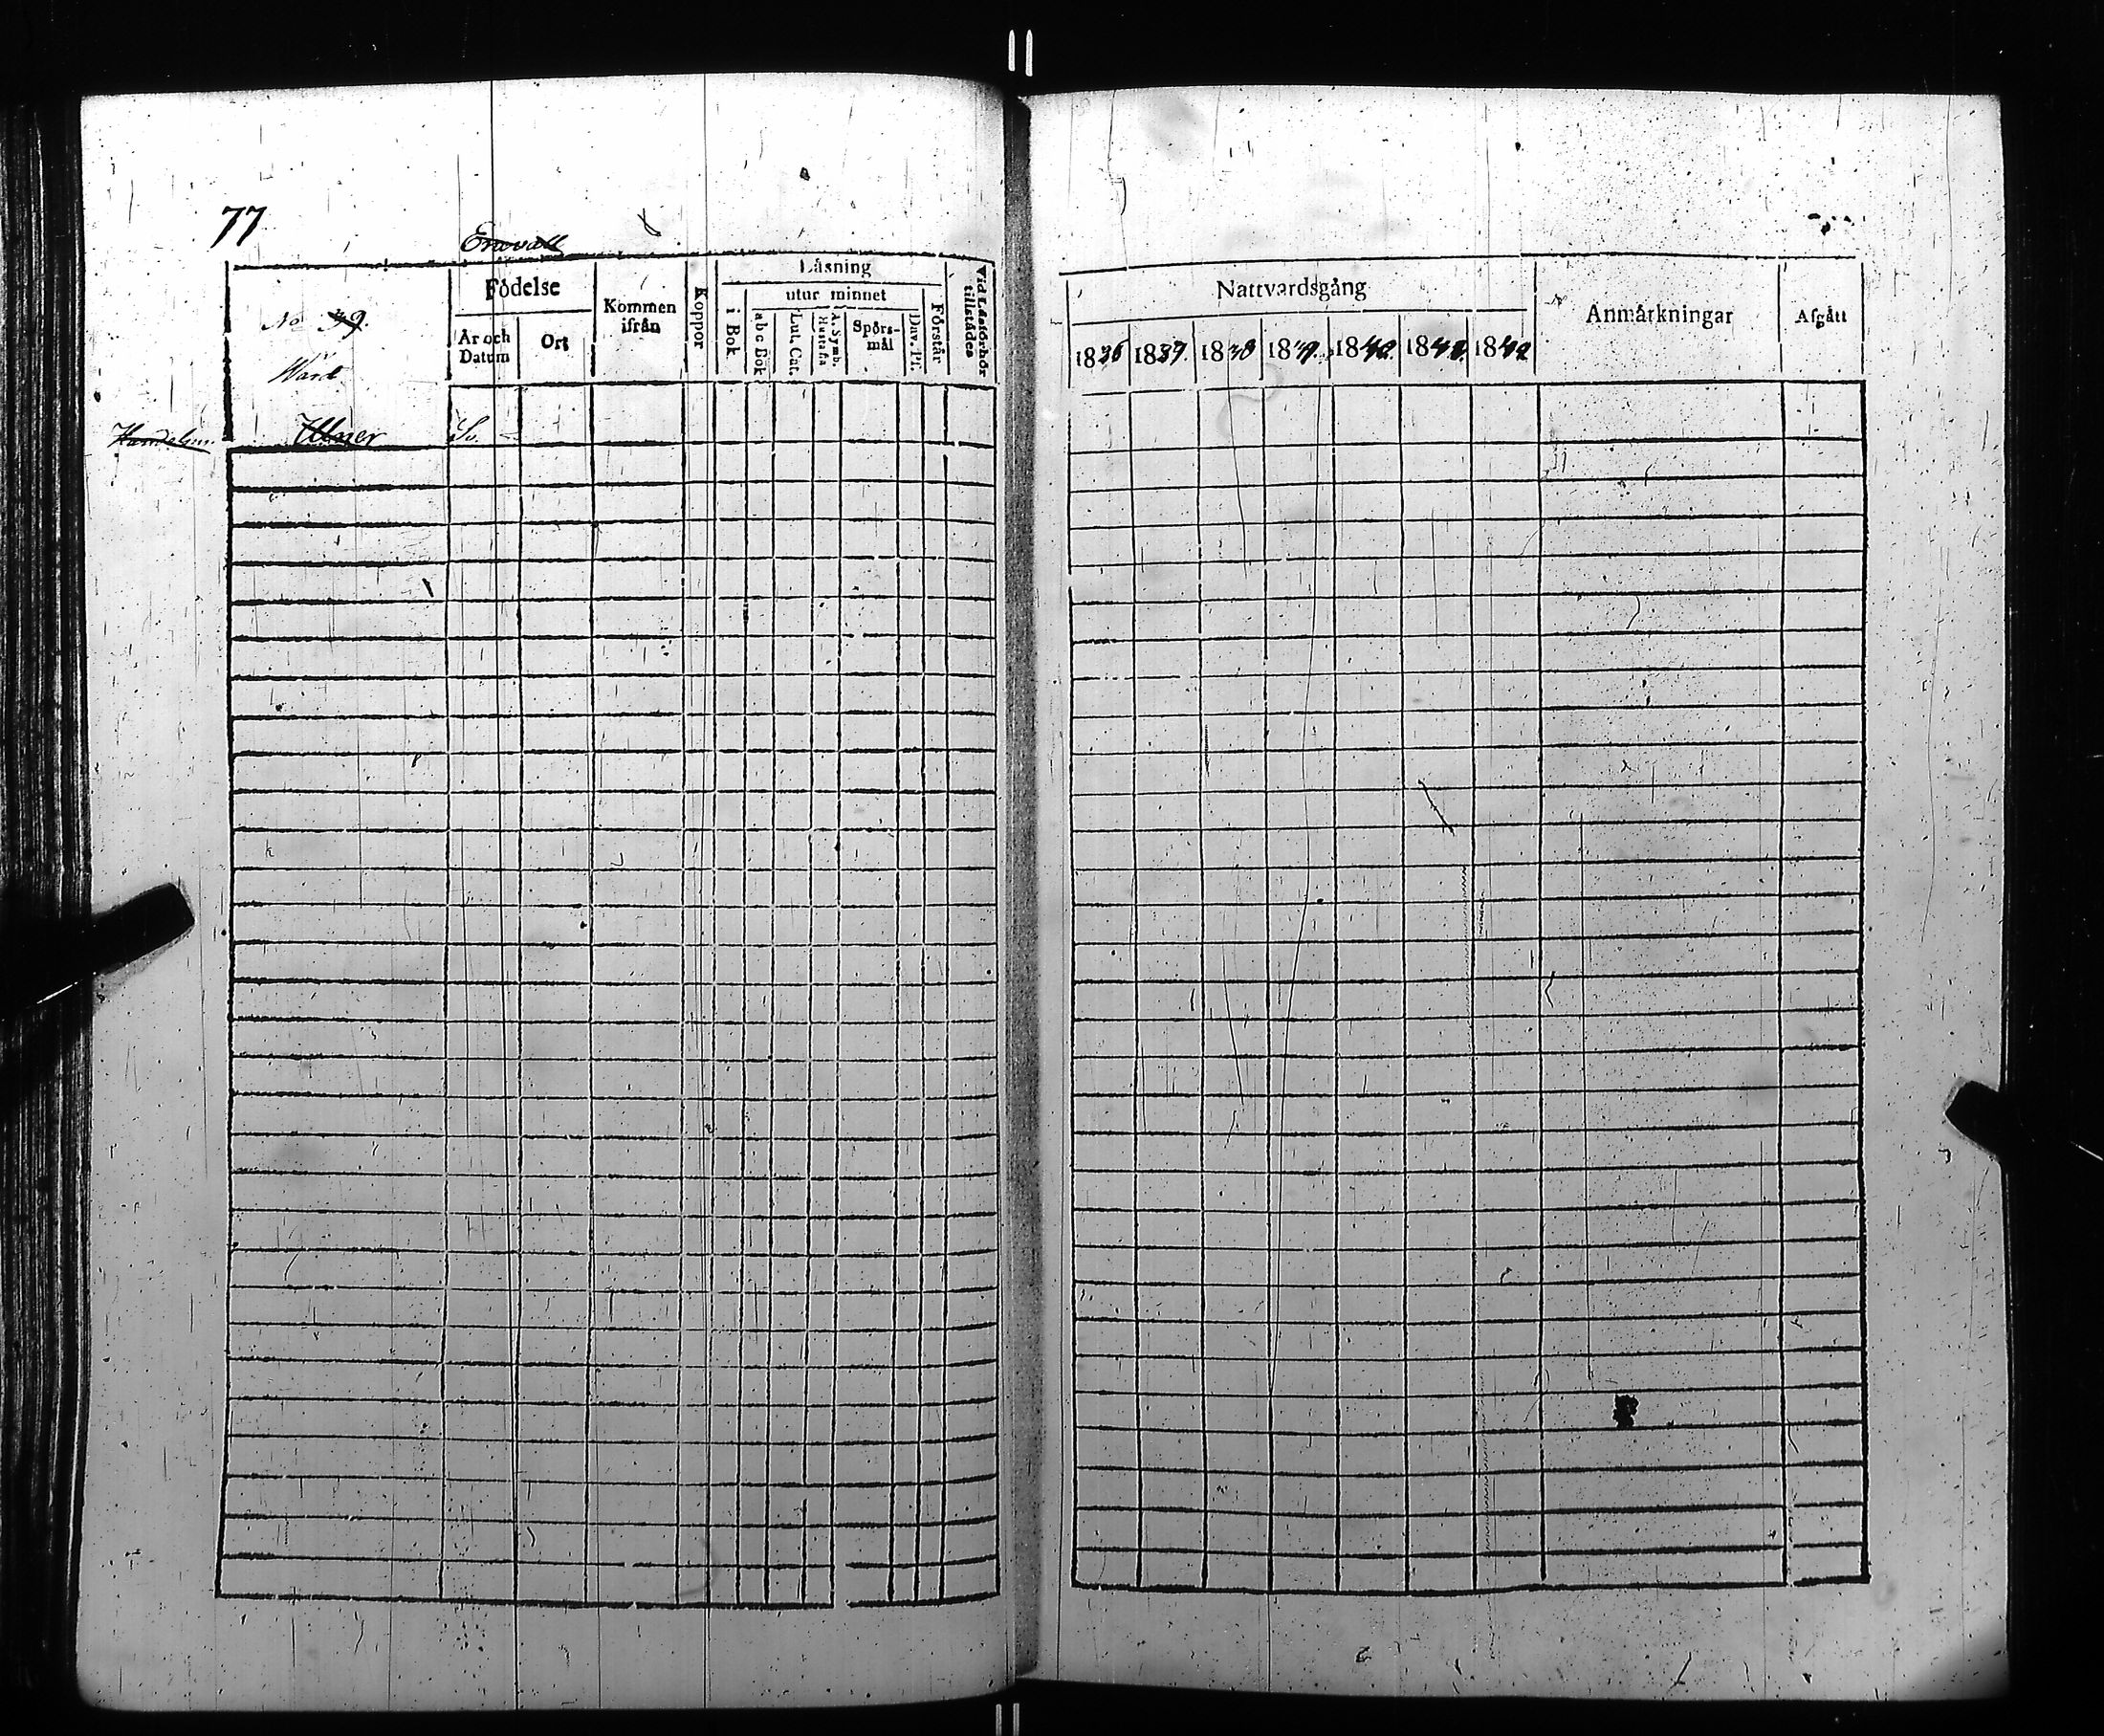 77
Enevald
No 39.
Värd
Födelse
År och Datum
Ort
Kommen ifrån
Koppor
Läsning
i Bok
utur minnet
abc Bok
Lut. Cat.
A. Symb. Hustafla
Spörsmål
Dav. Ps.
Förstår
Vid Läsförhör tillstädes
Handelsm. Ullner Sv.
Nattvardsgång
1836 1837 1838 1839. 1840. 1841. 1842
Anmärkningar
Afgått